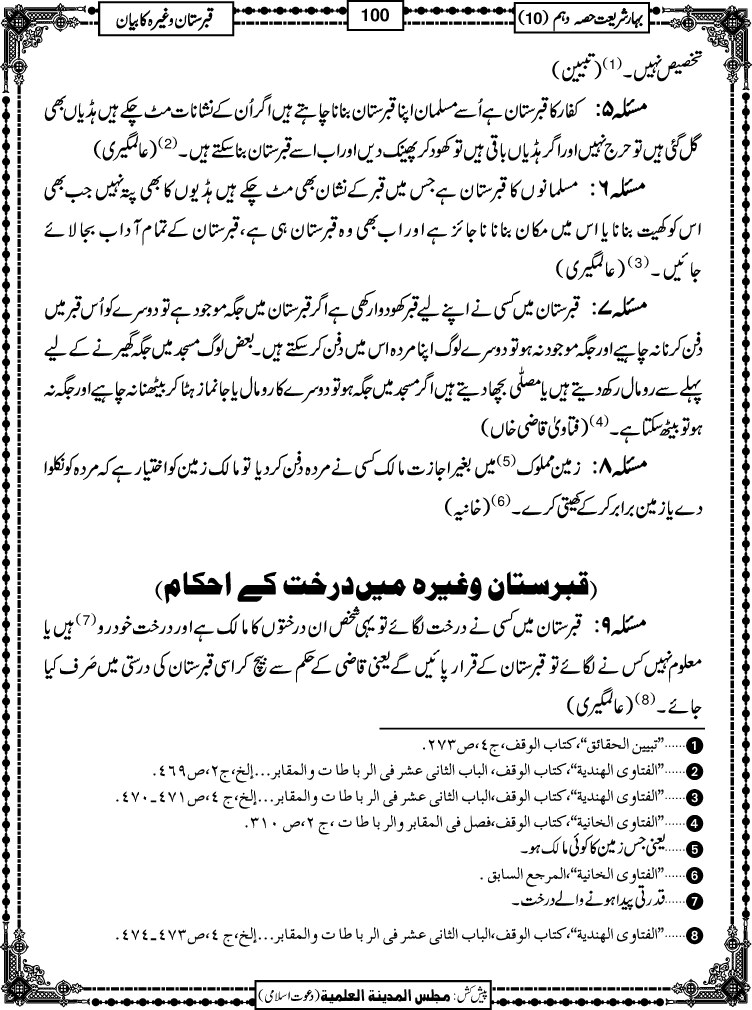 بہارشریعت حصہ دہم (10)
100
قبرستان وغیرہ کا بیان
تخصیص نہیں۔(1) (تبیین)
مسئلہ ۵: کفار کا قبرستان ہے اُسے مسلمان اپنا قبرستان بنانا چاہتے ہیں اگر اُن کے نشانات مٹ چکے ہیں ہڈیاں بھی
گل گئی ہیں تو حرج نہیں اور اگر ہڈیاں باقی ہیں تو کھود کر پھینک دیں اور اب اسے قبرستان بنا سکتے ہیں۔(2) (عالمگیری)
مسئلہ ۶: مسلمانوں کا قبرستان ہے جس میں قبر کے نشان بھی مٹ چکے ہیں ہڈیوں کا بھی پتہ نہیں جب بھی
اس کو کھیت بنانا یا اس میں مکان بنانا ناجائز ہے اور اب بھی وہ قبرستان ہی ہے، قبرستان کے تمام آداب بجا لائے
جائیں۔(3) (عالمگیری)
مسئلہ ۷: قبرستان میں کسی نے اپنے لیے قبر کھودوا رکھی ہے اگر قبرستان میں جگہ موجود ہے تو دوسرے کو اُس قبر میں
دفن کرنا نہ چاہیے اور جگہ موجود نہ ہو تو دوسرے لوگ اپنا مردہ اس میں دفن کر سکتے ہیں۔ بعض لوگ مسجد میں جگہ گھیرنے کے لیے
پہلے سے رومال رکھ دیتے ہیں یا مصلّی بچھا دیتے ہیں اگر مسجد میں جگہ ہو تو دوسرے کا رومال یا جانماز ہٹا کر بیٹھنا نہ چاہیے اور جگہ نہ
ہو تو بیٹھ سکتا ہے۔(4) (فتاویٰ قاضی خاں)
مسئلہ ۸: زمین مملوک(5) میں بغیر اجازت مالک کسی نے مردہ دفن کر دیا تو مالک زمین کو اختیار ہے کہ مردہ کو نکلوا
دے یا زمین برابر کر کے کھیتی کرے۔(6) (خانیہ)
(قبرستان وغیرہ میں درخت کے احکام)
مسئلہ ۹: قبرستان میں کسی نے درخت لگائے تو یہی شخص ان درختوں کا مالک ہے اور درخت خودرو(7) ہیں یا
معلوم نہیں کس نے لگائے تو قبرستان کے قرار پائیں گے یعنی قاضی کے حکم سے بیچ کر اسی قبرستان کی درستی میں صَرف کیا
جائے۔(8) (عالمگیری)
1 ......"تبیین الحقائق"، کتاب الوقف، ج٤، ص٢٧٣.
2 ......"الفتاوی الھندیة"، کتاب الوقف، الباب الثانی عشر فی الرباطات والمقابر...إلخ، ج٢، ص٤٦٩.
3 ......"الفتاوی الھندیة"، کتاب الوقف، الباب الثانی عشر فی الرباطات والمقابر...إلخ، ج٤، ص٤٧١۔٤٧٠.
4 ......"الفتاوی الخانیة"، کتاب الوقف، فصل فی المقابر والرباطات، ج٢، ص٣١٠.
5 ......یعنی جس زمین کا کوئی مالک ہو۔
6 ......"الفتاوی الخانیة"، المرجع السابق.
7 ......قدرتی پیدا ہونے والے درخت۔
8 ......"الفتاوی الھندیة"، کتاب الوقف، الباب الثانی عشر فی الرباطات والمقابر...إلخ، ج٤، ص٤٧٣۔٤٧٤.
پیش کش: مجلس المدینة العلمیة (دعوت اسلامی)